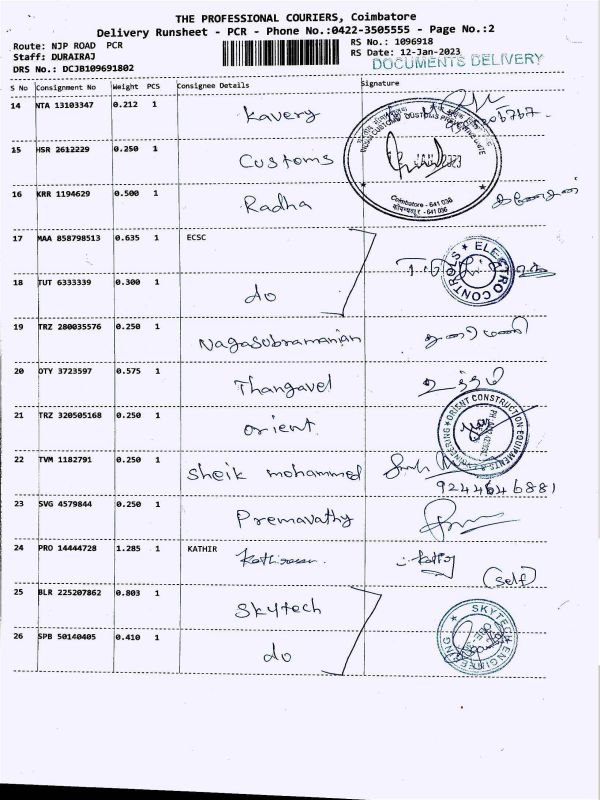 THE PROFESSIONAL COURIERS, Coimbatore
Delivery Runsheet - PCR - Phone No.:0422-3505555 - Page No.:2
Route: NJP ROAD PCR
RS No.: 1096918
Staff: DURAIRAJ
RS Date: 12-Jan-2023
DRS No.: DCJB109691802
DOCUMENTS DELIVERY
S No Consignment No Weight PCS Consignee Details Signature
14 NTA 13103347 0.212 1 Kavery
15 HSR 2612229 0.250 1 Customs
Coimbatore - 641 036
16 KRR 1194629 0.500 1 Radha
17 MAA 858798513 0.635 1 ECSC
ELECTRO CONTROLS
18 TUT 6333339 0.300 1 do
19 TRZ 280035576 0.250 1 Nagasubramanian
20 OTY 3723597 0.575 1 Thangavel
21 TRZ 320505168 0.250 1 orient
ORIENT CONSTRUCTION EQUIPMENTS & ENGINEERING
22 TVM 1182791 0.250 1 sheik mohammed
9244646881
23 SVG 4579844 0.250 1 Premavathy
24 PRO 14444728 1.285 1 KATHIR Kathiresan
(self)
25 BLR 225207862 0.803 1 Skytech
26 SPB 50140405 0.410 1 do